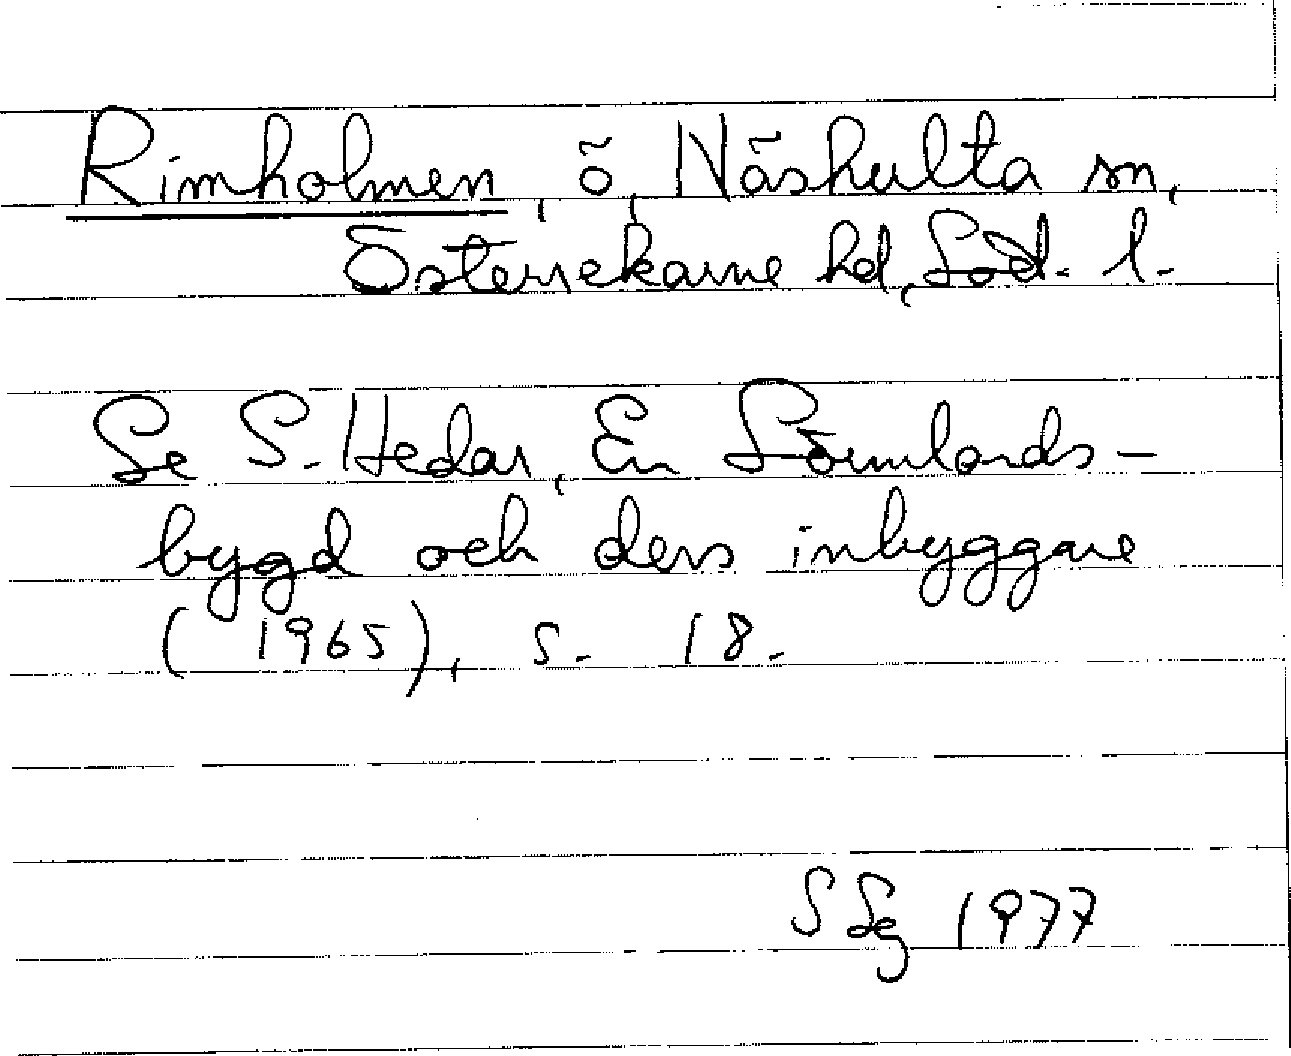 Rimholmen, ö, Näshulta sn,
Österrekarne hd, Söd. l.
Se S. Hedar, En Sörmlands-
bygd och dess inbyggare
(1965), s. 18.
S Sg 1977